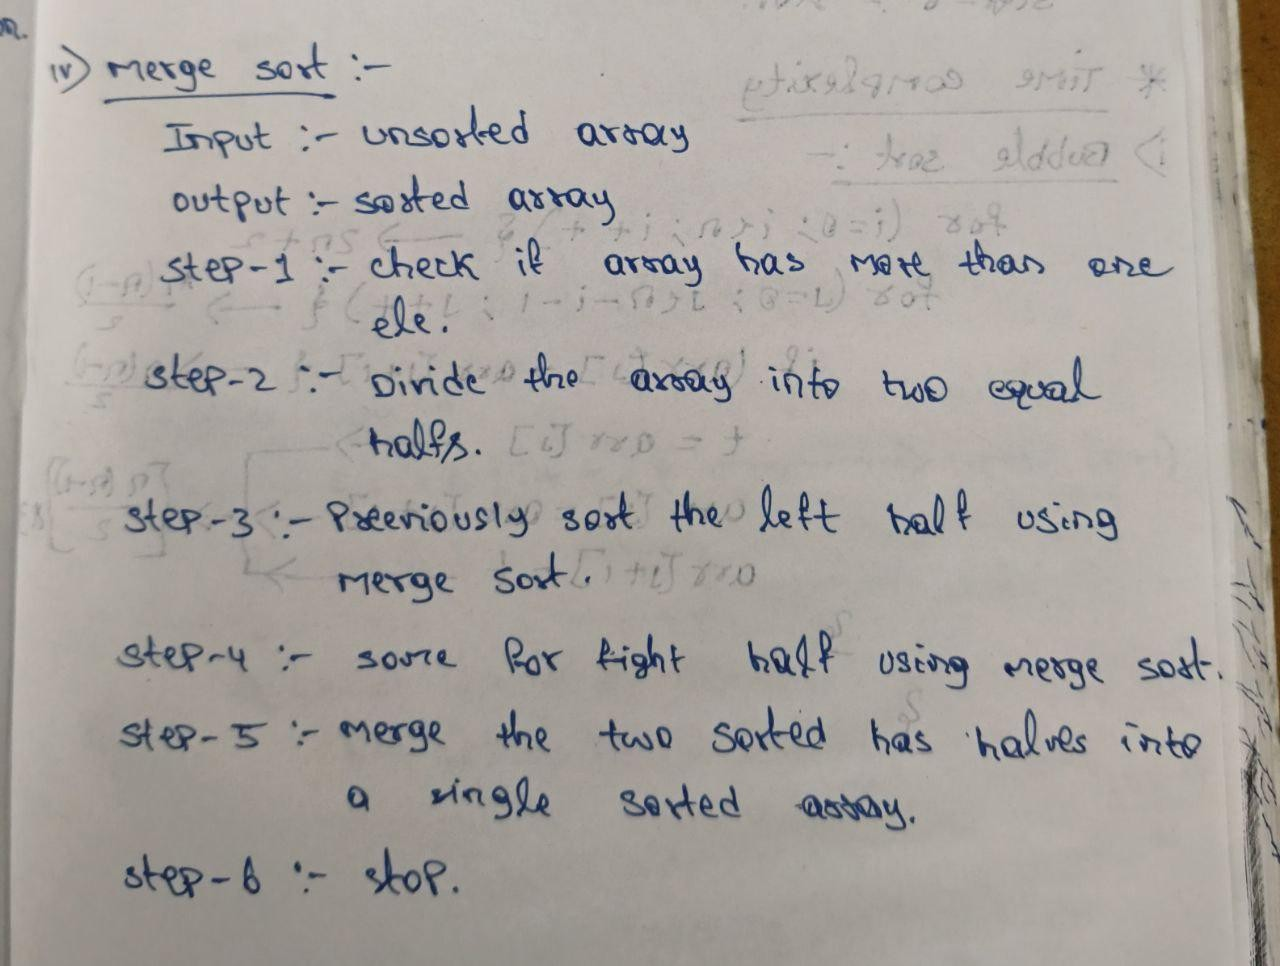 iv) Merge sort :-
Input :- unsorted array
output :- sorted array
step-1 :- check if array has more than one
ele.
step-2 :- Divide the array into two equal
halfs.
step-3 :- Preeviously sort the left half using
merge sort.
step-4 :- some for right half using merge sort.
step-5 :- merge the two sorted has halves into
a single sorted array.
step-6 :- stop.